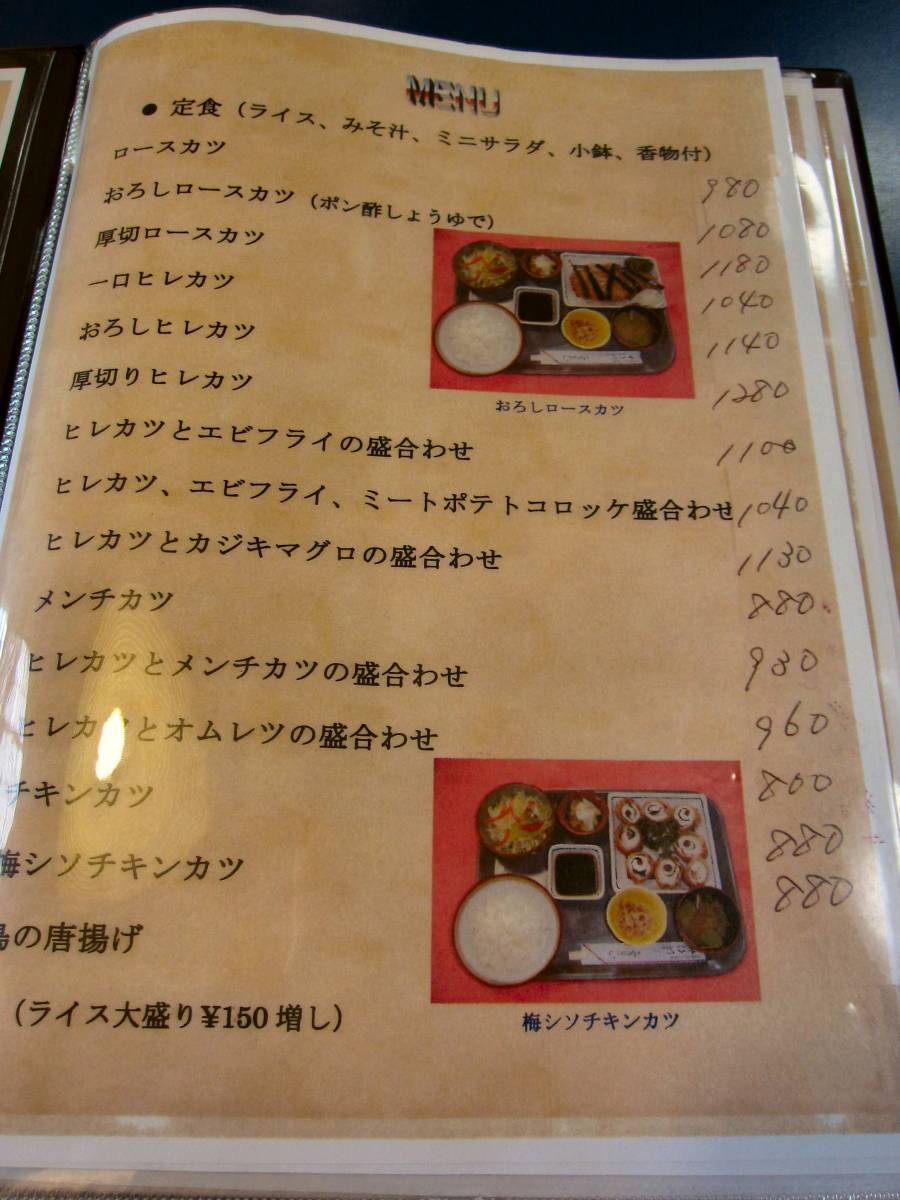 MENU
● 定食（ライス、みそ汁、ミニサラダ、小鉢、香物付）
ロースカツ 980
おろしロースカツ（ポン酢しょうゆで） 1080
厚切ロースカツ 1180
一口ヒレカツ 1040
おろしヒレカツ 1140
厚切りヒレカツ 1280
ヒレカツとエビフライの盛合わせ 1100
ヒレカツ、エビフライ、ミートポテトコロッケ盛合わせ 1040
ヒレカツとカジキマグロの盛合わせ 1130
メンチカツ 880
ヒレカツとメンチカツの盛合わせ 930
ヒレカツとオムレツの盛合わせ 960
チキンカツ 800
梅シソチキンカツ 880
鳥の唐揚げ 880
（ライス大盛り¥150増し）
おろしロースカツ
梅シソチキンカツ